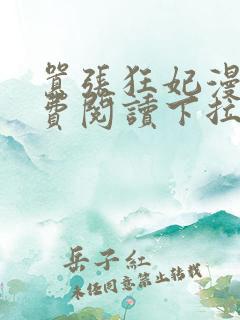 囂張狂妃漫
費閱讀下拉
岳子紅
未經同意禁止轉載